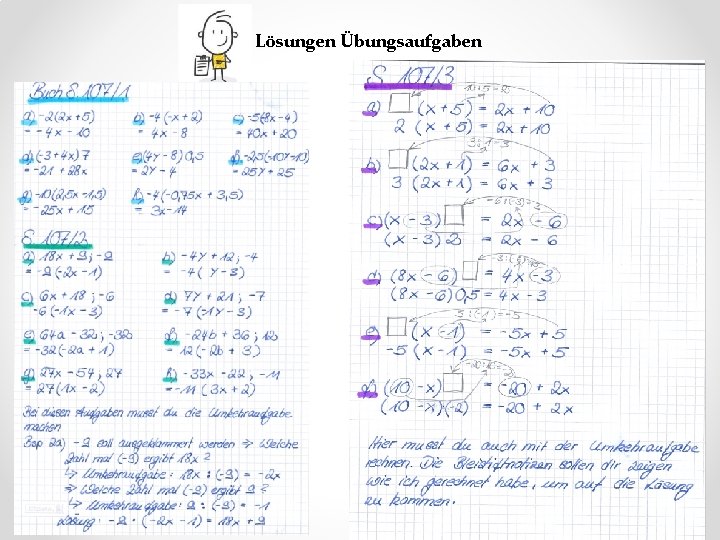 Lösungen Übungsaufgaben
Buch S 107/1
a) -2(2x+5) b) -4(-x+2) c) -5(8x-4)
= -4x -10 = 4x -8 = 40x + 20
d) (-3+4x)7 e) (4y-8)0,5 f) -2,5(-10y-10)
= -21 + 28x = 2y - 4 = 25y + 25
g) -10(2,5x-1,5) h) -4(-0,75x + 3,5)
= -25x + 15 = 3x -14
S 107/2
a) 18x + 9; -9 b) -4y + 12; -4
= -9(-2x -1) = -4(y -3)
c) 6x + 18; -6 d) 7y + 21; -7
-6(-1x -3) = -7(-1y -3)
e) 64a - 32; -32 f) -24b + 36; 12
= -32(-2a + 1) = 12(-2b + 3)
g) 27x - 54; 27 h) -33x -22; -11
= 27(1x -2) = -11(3x + 2)
Bei diesen Aufgaben musst du die Umkehraufgabe
machen
Bsp 2a) -9 soll ausgeklammert werden => Welche
Zahl mal (-9) ergibt 18x?
↳ Umkehraufgabe: 18x : (-9) = -2x
=> Welche Zahl mal (-9) ergibt 9?
↳ Umkehraufgabe: 9 : (-9) = -1
Lösung: -9 · (-2x -1) = 18x + 9
S 107/3
10:5=2
a) □ (x + 5) = 2x + 10
2 (x + 5) = 2x + 10
3:1=3
b) □ (2x + 1) = 6x + 3
3 (2x + 1) = 6x + 3
c) (x - 3) □ = 2x - 6
(x - 3) 2 = 2x - 6
d) (8x - 6) □ = 4x - 3
(8x - 6) 0,5 = 4x - 3
e) □ (x - 1) = -5x + 5
-5 (x - 1) = -5x + 5
f) (10 - x) □ = -20 + 2x
(10 - x)·(-2) = -20 + 2x
Hier musst du auch mit der Umkehraufgabe
rechnen. Die Bleistiftnotizen sollen dir zeigen
wie ich gerechnet habe, um auf die Lösung
zu kommen.